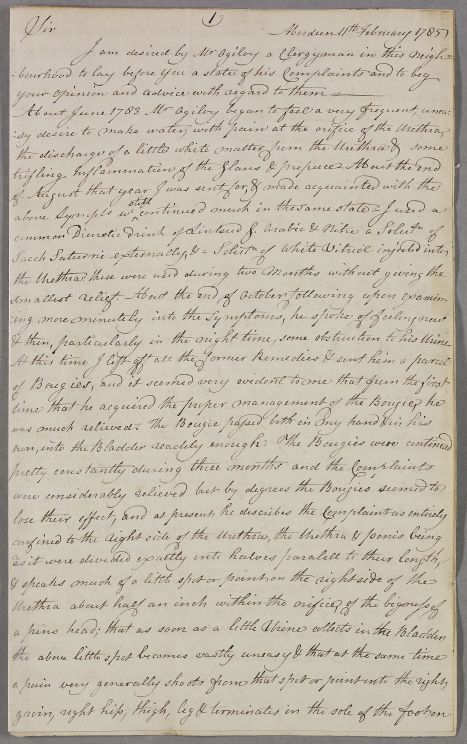 1
Sir
Aberdeen 11th February 1785
I am desired by Mr Ogilvy a Clergyman in this neigh=
=bourhood to lay before you a state of his Complaints and to beg
your opinion and advice with regard to them
About June 1783 Mr Ogilvy began to feel a very frequent, unea=
=sy desire to make water, with pain at the orifice of the Urethra,
the discharge of a little white matter from the Urethra & some
trifling Inflammation of the Glans & prepuce. About the end
of August that year I was sent for, & made acquainted with the
above Symptoms wch still continued much in the same state = I used a
common Diuretic Drink of Lintseed G. arabic & Nitre a Solutn of
Sacch Saturni externally, & a Solutn of White Vitriol injected into
the Urethra these were used during two Months without giving the
smallest relief About the end of October following upon examin=
=ing more minutely into the Symptoms, he spoke of feeling now
& then, particularly in the night time, some obstruction to his Urine
At this time I left off all the former Remedies & sent him a parcel
of Bougies, and it seemed very evident to me that from the first
time that he acquired the proper management of the Bougie, he
was much relieved: The Bougie passed both in my hand & in his
own, into the Bladder readily enough: The Bougies were continued
pretty constantly during three months and the Complaints
were considerably relieved but by degrees the Bougies seemed to
lose their effect, and as present, he discribes the Complaint as entirely
confined to the right side of the Urethra, the Urethra & penis being
as it were divided exactly into halves paralell to their length,
& speaks much of a little spot or, point on the right side of the
Urethra about half an inch within the orifice, of the bigness of
a pins head; that as soon as a little Urine collects in the Bladder
the above little spot becomes vastly uneasy & that at the same time
a pain very generally shoots from that spot or point into the right
groin, right hip, thigh, leg & terminates in the sole of the foot on